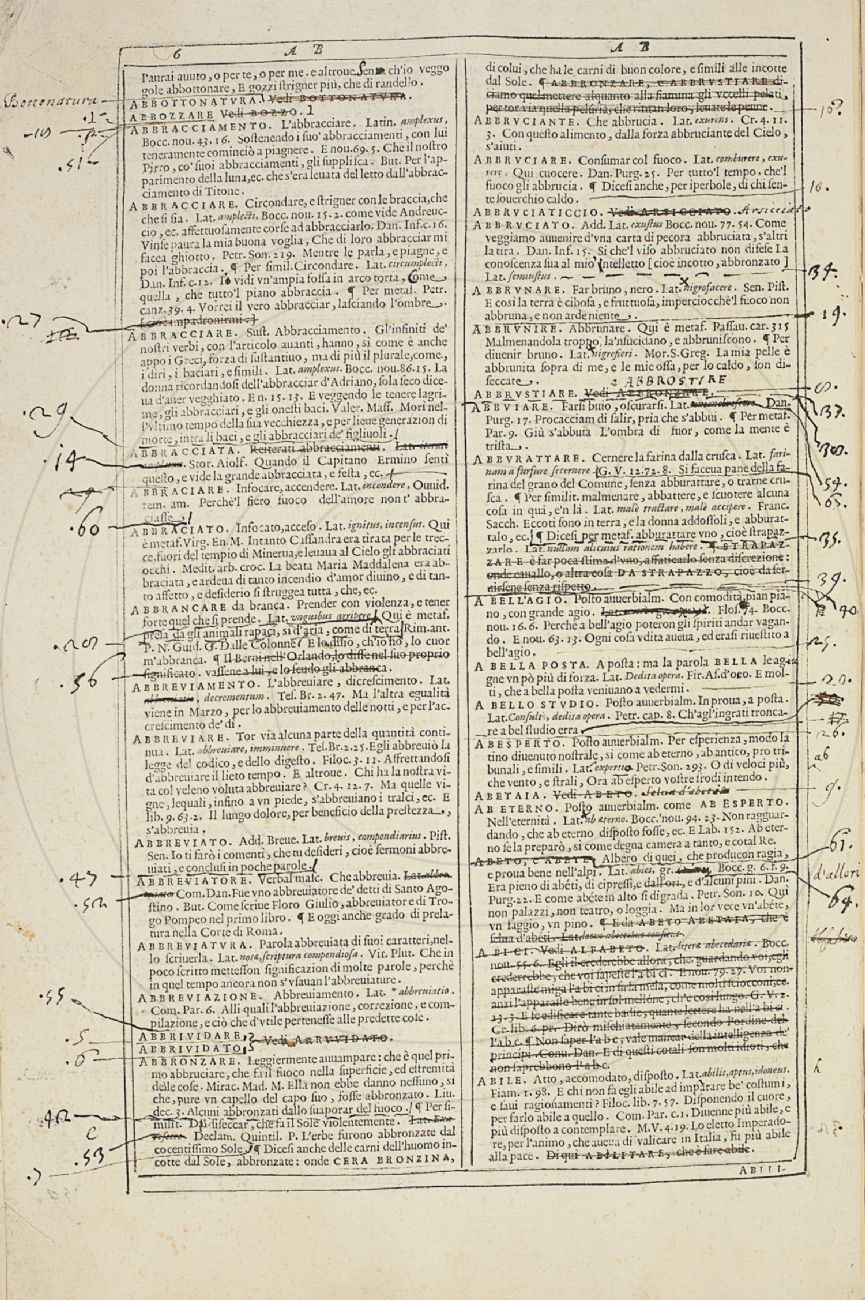 6 A B
Paurai auuto, o per te, o per me. e altroue. Sen ch'io veggo
gole abbottonare, E gozzi strigner più, che di randello.
Bottonatura
ABBOTTONATVRA. Vedi BOTTONATVRA.
ABBOZZARE Vedi BOZZO.
ABBRACCIAMENTO. L'abbracciare. Latin. amplexus,
Bocc. nou. 43. 16. Sostenendo i suo' abbracciamenti, con lui
teneramente cominciò a piagnere. E nou. 69. 5. Che il nostro
Pirro, co' suoi abbracciamenti, gli supplisca. But. Per l'ap-
parimento della luna, ec. che s'era leuata del letto dall'abbrac-
ciamento di Titone.
ABBRACCIARE. Circondare, e strigner con le braccia, che
che si sia. Lat. amplecti, Bocc. nou. 15. 2. come vide Andreuc-
cio, ec. affettuosamente corse ad abbracciarlo. Dan. Inf. c. 16.
Vinse paura la mia buona voglia, Che di loro abbracciar mi
facea ghiotto. Petr. Son. 219. Mentre le parla, e piagne, e
poi l'abbraccia. ¶ Per simil. Circondare. Lat. circumplecti,
Dan. Inf. c. 12. Io vidi vn'ampia fossa in arco torta, Come
quella, che tutto'l piano abbraccia. ¶ Per metaf. Petr.
canz. 39. 4. Vorrei il vero abbracciar, lasciando l'ombre.
[cioè impadronirmi.]
ABBRACCIARE. Sust. Abbracciamento. Gl'infiniti de'
nostri verbi, con l'articolo auanti, hanno, sì come è anche
appo i Greci, forza di sustantiuo, ma di più il plurale, come,
i diri, i baciari, e simili. Lat. amplexus. Bocc. nou. 86. 15. La
donna ricordandosi dell'abbracciar d'Adriano, sola seco dice-
ua d'auer vegghiato. E n. 15. 13. E veggendo le tenere lagri-
me, gli abbracciari, e gli onesti baci. Valer. Mass. Morì nel-
l'vltimo tempo della sua vecchiezza, e per lieue generazion di
morte, intra li baci, e gli abbracciari de' figliuoli.
ABBRACCIATA. Reiterati abbracciamenti. Lat.
Stor. Aiolf. Quando il Capitano Ermino sentì
questo, e vide la grande abbracciata, e festa, ec.
ABBRACIARE. Infocare, accendere. Lat. incendere, Ouuid.
rem. am. Perchè'l fiero fuoco dell'amore non t'abbra-
ciasse.
ABBRACIATO. Infocato, acceso. Lat. ignitus, incensus. Qui
è metaf. Virg. En. M. Intanto Cassandra era tirata per le trec-
ce, fuori del tempio di Minerua, e leuaua al Cielo gli abbraciati
occhi. Medit. arb. croc. La beata Maria Maddalena era ab-
braciata, e ardeua di tanto incendio d'amor diuino, e di tan-
to affetto, e desiderio si struggea tutta, che, ec.
ABBRANCARE da branca. Prender con violenza, e tener
forte quel che si prende. Lat. vnguibus arripere. Qui è metaf.
presa da gli animali rapaci, sì d'aria, come di terra. Rim. ant.
P. N. Guid. G. Dalle Colonne. E lo disìo, ch'lo hò, lo cuor
m'abbranca. ¶ Il Berni nell'Orlando, lo disse nel suo proprio
significato. vassene a lui, e lo scudo gli abbranca.
ABBREVIAMENTO. L'abbreuiare, dicrescimento. Lat.
decrementum. Tes. Br. 2. 47. Ma l'altra egualità
viene in Marzo, per lo abbreuiamento delle notti, e per l'ac-
crescimento de' dì.
ABBREVIARE. Tor via alcuna parte della quantità conti-
nua. Lat. abbreuiare, imminuere. Tes. Br. 2. 25. Egli abbreuiò la
legge del codico, e dello digesto. Filoc. 3. 11. Affrettandosi
d'abbreuiare il lieto tempo. E altroue. Chi ha la nostra vi-
ta col veleno voluta abbreuiare? Cr. 4. 12. 7. Ma quelle vi-
gne, le quali, infino a vn piede, s'abbreuiano i tralci, ec. E
lib. 9. 63. 2. Il lungo dolore, per beneficio della prestezza,
s'abbreuia.
ABBREVIATO. Add. Breue. Lat. breuis, compendiarius. Pist.
Sen. Io ti farò i comenti, che tu desideri, cioè sermoni abbre-
uiati, e conclusi in poche parole.
ABBREVIATORE. Verbal masc. Che abbreuia.
Com. Dan. Fue vno abbreuiatore de' detti di Santo Ago-
stino. But. Come scriue Floro Giulio, abbreuiatore e di Tro-
go Pompeo nel primo libro. ¶ E oggi anche grado di prela-
tura nella Corte di Roma.
ABBREVIATVRA. Parola abbreuiata di suoi caratteri, nel-
lo scriuerla. Lat. nota, scriptura compendiosa. Vit. Plut. Che in
poco scritto mettesson significazion di molte parole, perchè
in quel tempo ancora non s'vsauan l'abbreuiature.
ABBREVIAZIONE. Abbreuiamento. Lat. *abbreuiatio.
Com. Par. 6. Alli quali l'abbreuiazione, correzione, e com-
pilazione, e ciò che d'vtile pertenesse alle predette cose.
ABBRIVIDARE,
ABBRIVIDATO. Vedi ARRVVIDATO.
ABBRONZARE. Leggiermente auuampare: che è quel pri-
mo abbruciare, che fa il fuoco nella superficie, ed estremità
delle cose. Mirac. Mad. M. Ella non ebbe danno nessuno, sì
che, pure vn capello del capo suo, fosse abbronzato. Liu.
dec. 3. Alcuni abbronzati dallo suaporar del fuoco. ¶ Per si-
milit. Da disseccar, che fa il Sole violentemente. Lat.
Declam. Quintil. P. L'erbe furono abbronzate dal
cocentissimo Sole. ¶ Dicesi anche delle carni dell'huomo in-
cotte dal Sole, abbronzate: onde CERA BRONZINA,
A B
di colui, che ha le carni di buon colore, e simili alle incotte
dal Sole. ¶ ABBRONZARE, E ABBRVSTIARE di-
ciamo quel mettere alquanto alla fiamma gli vccelli pelati,
per tor via quella peluria, che riman loro, leuate le penne.
ABBRVCIANTE. Che abbrucia. Lat. exurens. Cr. 4. 11.
3. Con questo alimento, dalla forza abbruciante del Cielo,
s'aiuti.
ABBRVCIARE. Consumar col fuoco. Lat. comburere, exu-
rere. Qui cuocere. Dan. Purg. 25. Per tutto'l tempo, che'l
fuoco gli abbrucia. ¶ Dicesi anche, per iperbole, di chi sen-
te souerchio caldo.
ABBRVCIATICCIO. Vedi ARSICCIATO. Arsicciato
ABBRVCIATO. Add. Lat. exustus Bocc. nou. 77. 54. Come
veggiamo auuenire d'vna carta di pecora abbruciata, s'altri
la tira. Dan. Inf. 15. Sì che'l viso abbruciato non difese La
conoscenza sua al mio 'ntelletto [cioè incotto, abbronzato]
Lat. semustus.
ABBRVNARE. Far bruno, nero. Lat. nigrofacere. Sen. Pist.
E così la terra è cibosa, e fruttuosa, imperciocchè'l fuoco non
abbruna, e non arde niente.
ABBRVNIRE. Abbrunare. Qui è metaf. Passau. car. 315
Malmenandola troppo, la'nsucidano, e abbruniscono. ¶ Per
diuenir bruno. Lat. nigrefieri. Mor. S. Greg. La mia pelle è
abbrunita sopra di me, e le mie ossa, per lo caldo, son di-
seccate. ABBROSTIRE
ABBRVSTIARE. Vedi ABBRONZARE.
ABBVIARE. Farsi buio, oscurarsi. Lat. Dan.
Purg. 17. Procacciam di salir, pria che s'abbui. ¶ Per metaf.
Par. 9. Giù s'abbuia L'ombra di fuor, come la mente è
trista.
ABBVRATTARE. Cernere la farina dalla crusca. Lat. fari-
nam a furfure secernere. G. V. 12. 72. 8. Si faceua pane della fa-
rina del grano del Comune, senza abburattare, o trarne cru-
sca. ¶ Per similit. malmenare, abbattere, e scuotere alcuna
cosa in quà, e'n là. Lat. malè tractare, malè accipere. Franc.
Sacch. Eccoti sono in terra, e la donna addossoli, e abburat-
talo, ec. ¶ Dicesi per metaf. abburattare vno, cioè strapaz-
zarlo. Lat. nullam alicuius rationem habere. ¶ STRAPAZ-
ZARE è far poca stima d'vno, affaticarlo senza discrezione:
onde cauallo, o altra cosa DA STRAPAZZO, cioè da ser-
uirsene senza rispetto.
A BELL'AGIO. Posto auuerbialm. Con comodità, pian pia-
no, con grande agio. Flos. 74. Bocc.
nou. 16. 6. Perchè a bell'agio poteron gli spiriti andar vagan-
do. E nou. 63. 13. Ogni cosa vdita aueua, ed erasi riuestito a
bell'agio.
A BELLA POSTA. A posta: ma la parola BELLA le ag-
giugne vn pò più di forza. Lat. Dedita opera. Fir. As. d'oro. E mol-
ti, che a bella posta veniuano a vedermi.
A BELLO STVDIO. Posto auuerbialm. In proua, a posta.
Lat. Consultò, dedita opera. Petr. cap. 8. Ch'agl'ingrati tronca-
re a bel studio erra
ABESPERTO. Posto auuerbialm. Per esperienza, modo la
tino diuenuto nostrale, sì come ab eterno, ab antico, pro tri-
bunali, e simili. Lat. experto. Petr. Son. 293. O di veloci più,
che vento, e strali, Ora ab esperto vostre frodi intendo.
ABETAIA. Vedi ABETO. Selua d'abeti
AB ETERNO. Posto auuerbialm. come AB ESPERTO.
Nell'eternità. Lat. ab eterno. Bocc. nou. 94. 23. Non ragguar-
dando, che ab eterno disposto fosse, ec. E Lab. 152. Ab eter-
no fe la preparò, sì come degna camera a tanto, e cotal Re.
ABETO, E ABETE. Albero di quei, che producon ragia,
e proua bene nell'alpi. Lat. abies, gr. Bocc. g. 6. f. 9.
Era pieno di abéti, di cipressi, e dallori, e d'alcuni pini. Dan.
Purg. 22. E come abéte in alto si digrada. Petr. Son. 10. Qui
non palazzi, non teatro, o loggia. Ma in lor vece vn'abéte,
vn faggio, vn pino. ¶ E da ABETO ABETAIA, che è
selua d'abéti. Lat.
A BICI. Vedi ALFABETO. Lat. literæ abecedariæ. Bocc.
nou. 55. 6. Egli il crederebbe allora, che, guardando voi, egli
crederrebbe, che voi sapeste l'a bi ci. E nou. 79. 27. Voi non
apparaste miga l'a bi ci in su la mela, come molti sciocconi, ec.
anzi l'apparaste bene in sul mellone, ch'è così lungo. G. V. 2.
23. 3. E fe edificare tante badie, quante lettere ha nell'a bi ci.
Cr. lib. 6. pr. Dirò mischiatamente, secondo l'ordine del-
l'a b c. ¶ Non saper l'a b c, vale mancar della intelligenza de'
principi. Conu. Dan. E di questi cotali son molti idioti, che
non saprebbono l'a b c.
ABILE. Atto, accomodato, disposto. Lat. abilis, aptus, idoneus.
Fiam. 1. 98. E chi non fa egli abile ad imparare be' costumi,
e suoi ragionamenti? Filoc. lib. 7. 57. Disponendo il cuore,
per farlo abile a quello. Com. Par. c. 1. Diuenne più abile, e
più disposto a contemplare. M. V. 4. 19. Lo eletto Imperado-
re, per l'animo, che aueua di valicare in Italia, fu più abile
alla pace. Di qui ABILITARE, che è fare abile.
ABILI-
.51
.27
.29
.14
.60
.20
.56
.47
.52
.55
.5
.6
.42
.53
.7
10.
34.
19.
37.
59.
63.
35.
39.
40.
25.
20.
126.
ab
61.
d'allori
64.